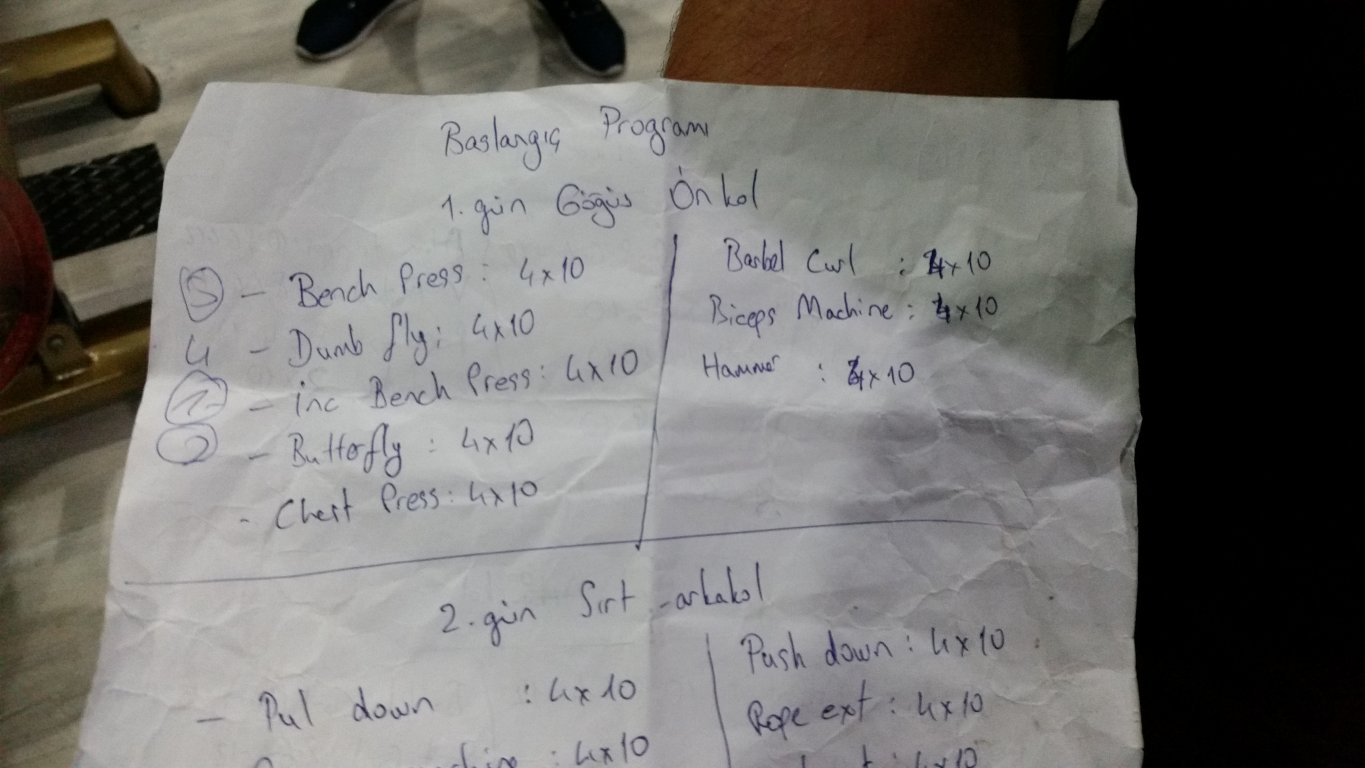 Baslangıç Programı
1. gün Göğüs Önkol
3 - Bench Press : 4x10
4 - Dumb fly : 4x10
1 - inc Bench Press : 4x10
2 - Butterfly : 4x10
- Chest Press : 4x10
Barbel Curl : 4x10
Biceps Machine : 4x10
Hammer : 4x10
2. gün Sırt - arkakol
- Pul down : 4x10
: 4x10
Push down : 4x10
Rope ext : 4x10
: 4x10